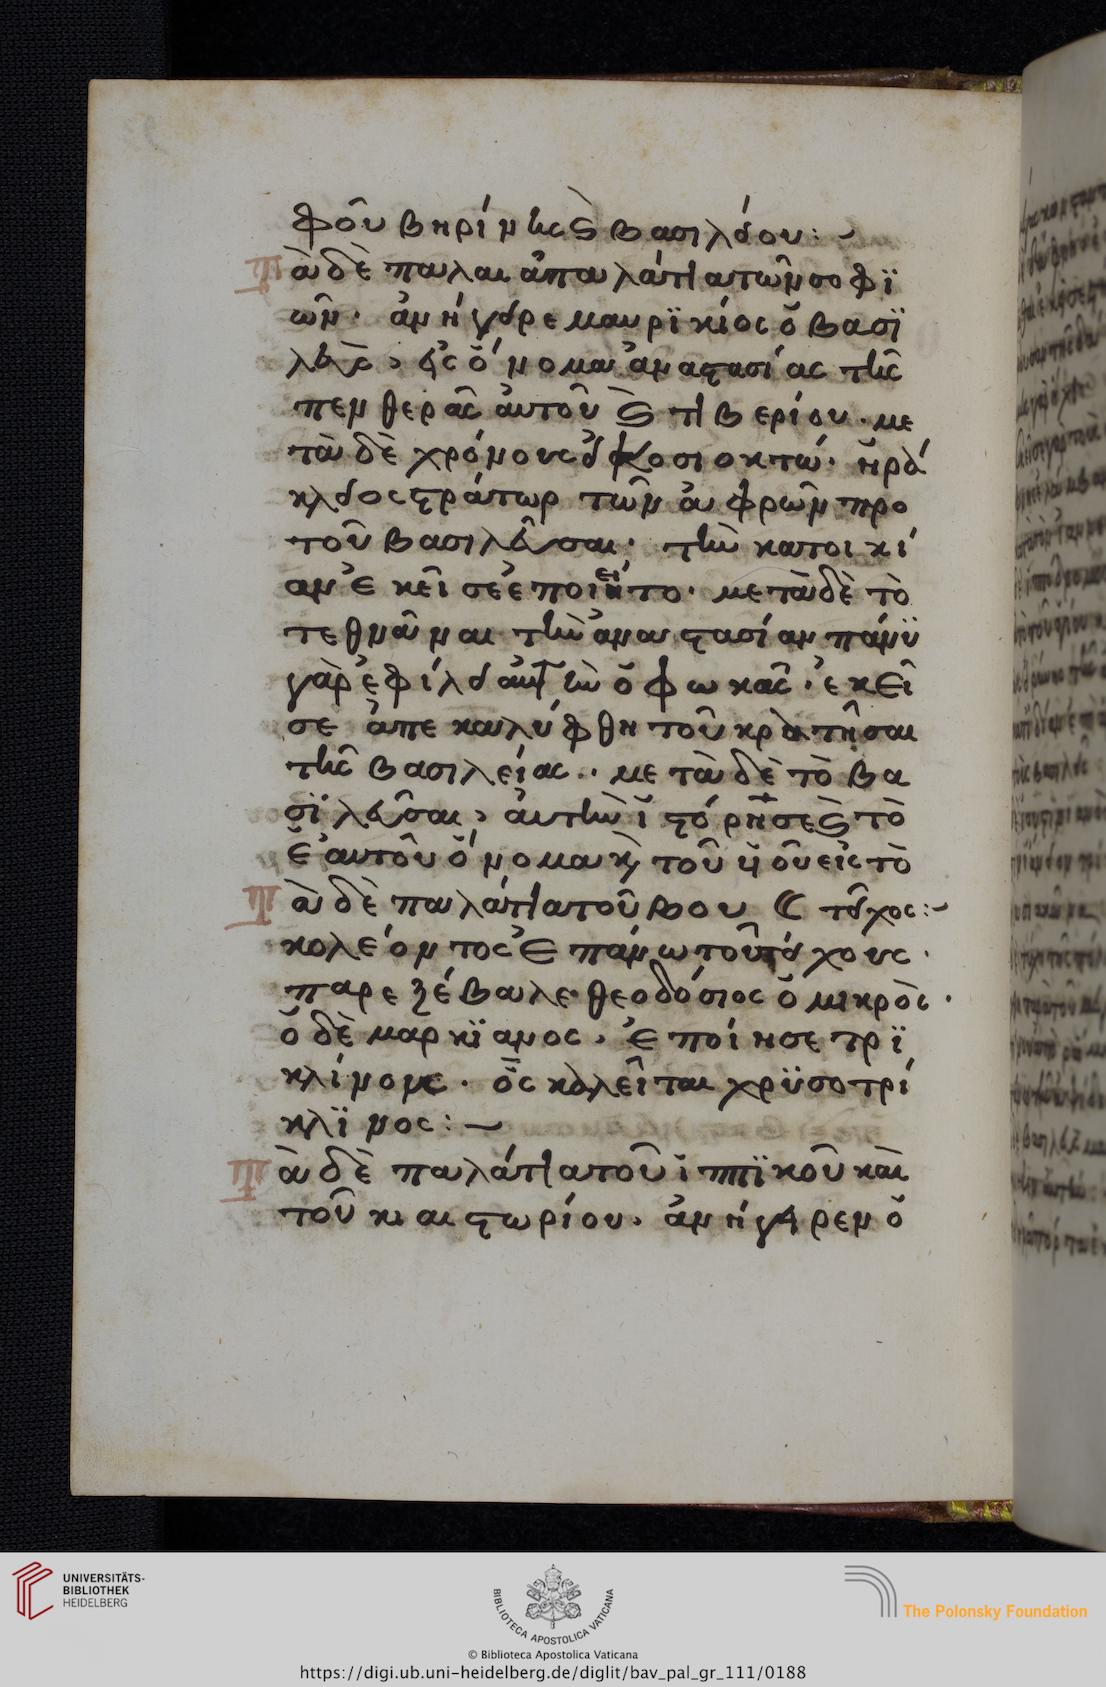 φοῦ βηρίνης ϛ̀ βασιλείου :
Τὰ δὲ παλαι ἀπαλάτια τῶν σοφϊ
ῶν · ἀνήγειρε μαυρϊκίος ὁ βασϊ
λεὺς , εἰς ὄνομα ἀναστασίας τῆς
πενθερᾶς ἀυτοῦ ϛ̀ τιβερίου · με
τὰ δὲ χρόνους εἴκοσι οκτώ · ἡρά
κλειος στράτωρ τῶν ἀυφρῶν προ
τοῦ βασιλεῦσαι · τὴν κατοικί
αν ἐκεῖσε ἐποιεῖτο · μετὰ δὲ τὸ
τεθνᾶναι τὴν ἀναστασίαν πάνϋ
γὰρ ἐφίλει αὐτὴν ὁ φωκᾶς · ἐκεῖ
σε ἀπεκαλύφθη τοῦ κρατῆσαι
τῆς βασιλείας · · μετὰ δὲ τὸ βα
σϊλεῦσαι , ἀυτὴν ἱστόρησε ϛ̀ τὸ
ἑαυτοῦ ὄνομα κὶ τοῦ ὑοῦ εἰς τὸ
Τὰ δὲ παλάτια τοῦ βου τεῖχος :
κολέοντος ἐπάνω τοῦ τείχους ·
παρεξέβαλε θεοδόσιος ὁ μικρὸς ·
ὁ δὲ μαρκϊανος · ἐποίησε τρϊ
κλίνους · ὃς καλεῖται χρϋσοτρί
κλϊνος :
Τὰ δὲ παλάτια τοῦ ἱππϊκοῦ καὶ
τοῦ κιαιστωρίου · ἀνήγειρεν ὁ
UNIVERSITÄTS-
BIBLIOTHEK
HEIDELBERG
BIBLIOTECA APOSTOLICA VATICANA
The Polonsky Foundation
© Biblioteca Apostolica Vaticana
https://digi.ub.uni-heidelberg.de/diglit/bav_pal_gr_111/0188